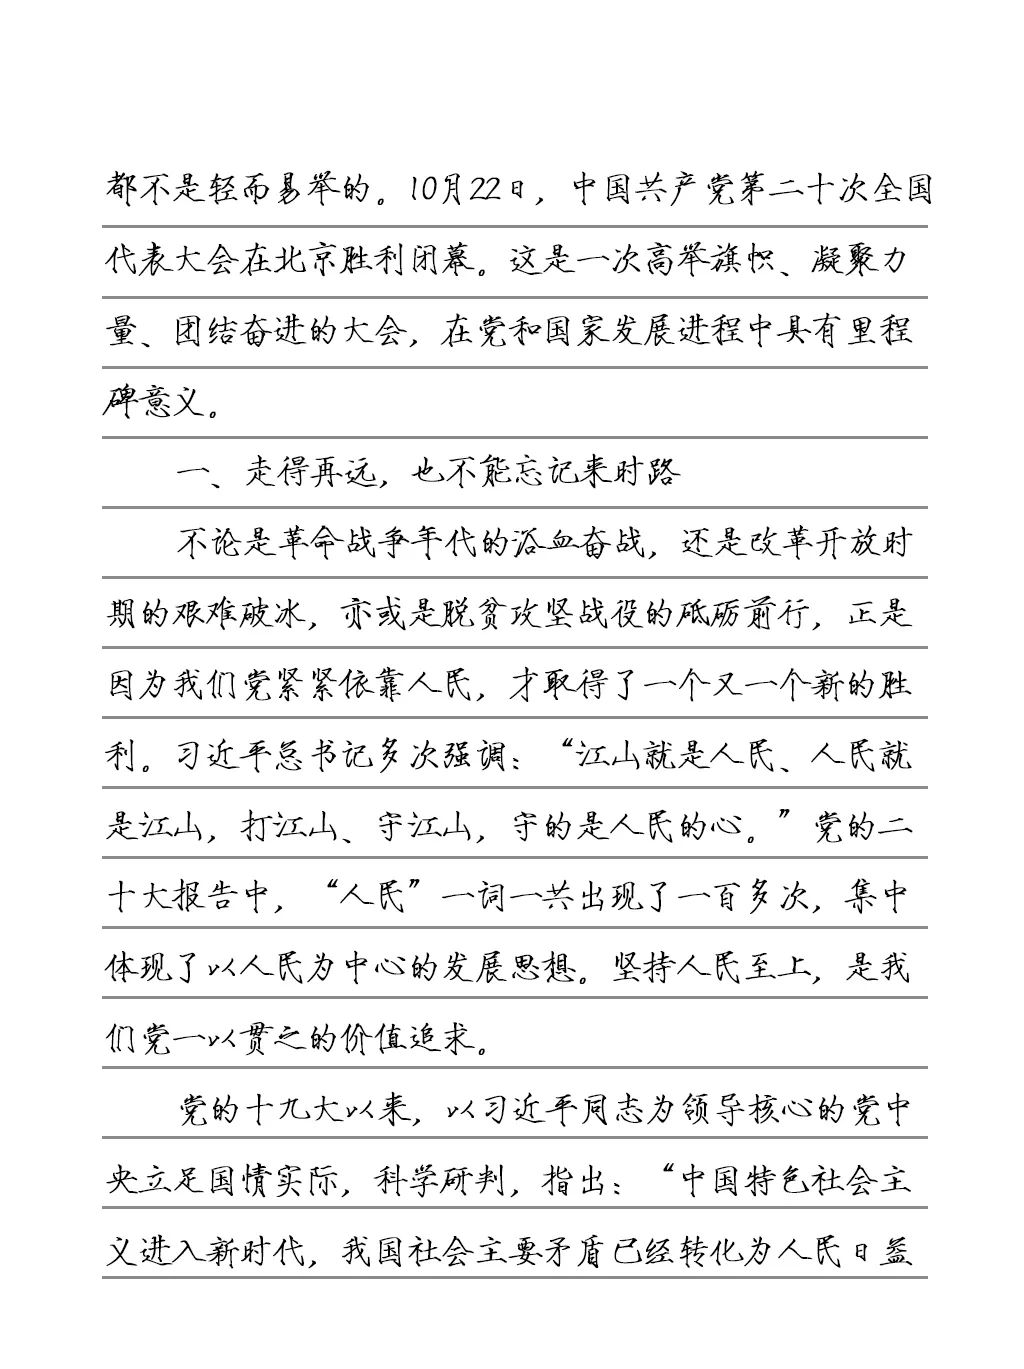 都不是轻而易举的。10月22日，中国共产党第二十次全国
代表大会在北京胜利闭幕。这是一次高举旗帜、凝聚力
量、团结奋进的大会，在党和国家发展进程中具有里程
碑意义。
一、走得再远，也不能忘记来时路
不论是革命战争年代的浴血奋战，还是改革开放时
期的艰难破冰，亦或是脱贫攻坚战役的砥砺前行，正是
因为我们党紧紧依靠人民，才取得了一个又一个新的胜
利。习近平总书记多次强调：“江山就是人民、人民就
是江山，打江山、守江山，守的是人民的心。”党的二
十大报告中，“人民”一词一共出现了一百多次，集中
体现了以人民为中心的发展思想。坚持人民至上，是我
们党一以贯之的价值追求。
党的十九大以来，以习近平同志为领导核心的党中
央立足国情实际，科学研判，指出：“中国特色社会主
义进入新时代，我国社会主要矛盾已经转化为人民日益